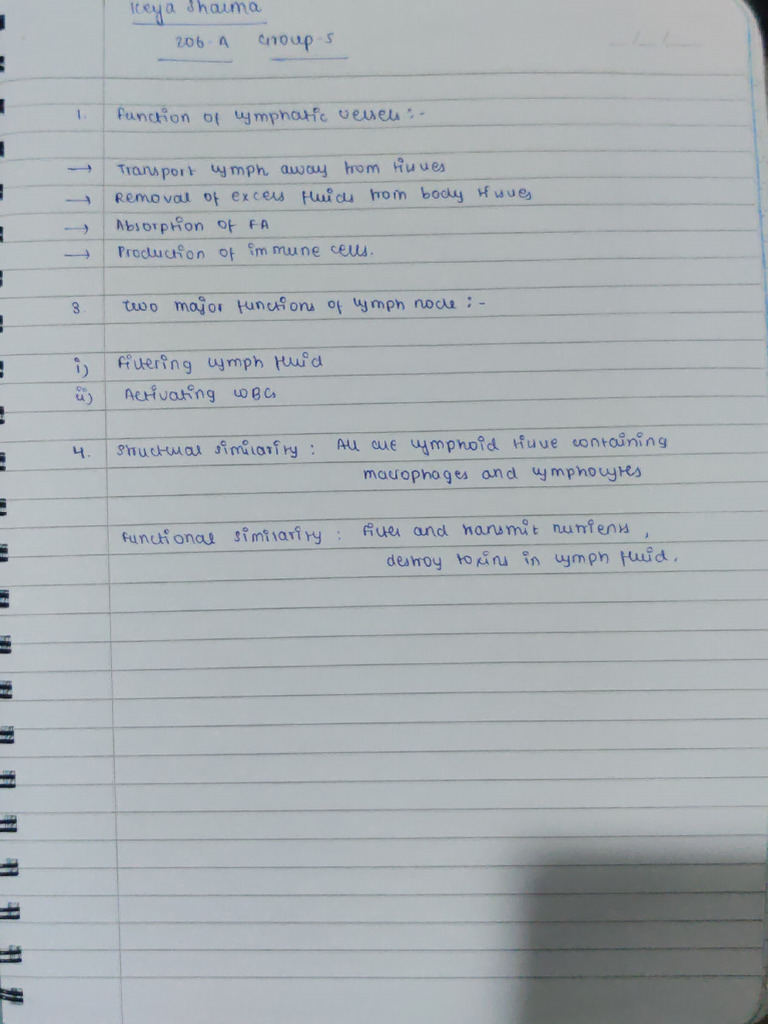 Keya Sharma
206-A Group-5
1. Function of lymphatic vessels :-
→ Transport lymph away from tissues
→ Removal of excess fluids from body tissues
→ Absorption of FA
→ Production of immune cells.
3. Two major functions of lymph node :-
i) Filtering lymph fluid
ii) Activating WBCs
4. Structural similarity : All are lymphoid tissue containing
macrophages and lymphocytes
Functional similarity : Filter and transmit nutrients ,
destroy toxins in lymph fluid.